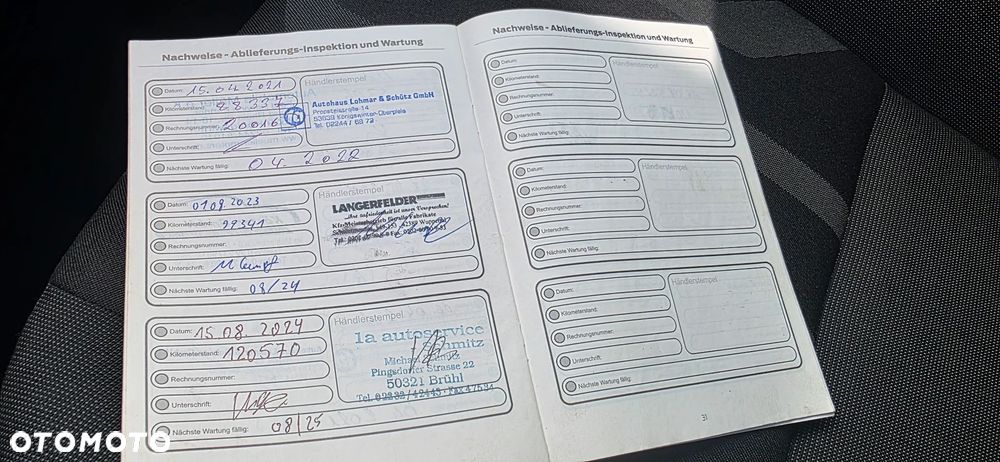 Nachweise - Ablieferungs-Inspektion und Wartung
Datum: 15.04.2021
Kilometerstand: 28337
Rechnungsnummer: 20016
Unterschrift:
Nächste Wartung fällig: 04.2022
Händlerstempel
Autohaus Lohmar & Schütz GmbH
53639 Königswinter-Oberpleis
Tel. 02244 / 68 72
Datum: 01.08.2023
Kilometerstand: 99341
Rechnungsnummer:
Unterschrift:
Nächste Wartung fällig: 08/24
Händlerstempel
LANGERFELDER
Datum: 15.08.2024
Kilometerstand: 120570
Rechnungsnummer:
Unterschrift:
Nächste Wartung fällig: 08/25
Händlerstempel
1a autoservice
Schmitz
Pingsdorfer Strasse 22
50321 Brühl
Nachweise - Ablieferungs-Inspektion und Wartung
Datum:
Kilometerstand:
Rechnungsnummer:
Unterschrift:
Nächste Wartung fällig:
Händlerstempel
Datum:
Kilometerstand:
Rechnungsnummer:
Unterschrift:
Nächste Wartung fällig:
Händlerstempel
Datum:
Kilometerstand:
Rechnungsnummer:
Unterschrift:
Nächste Wartung fällig:
Händlerstempel
31
OTOMOTO